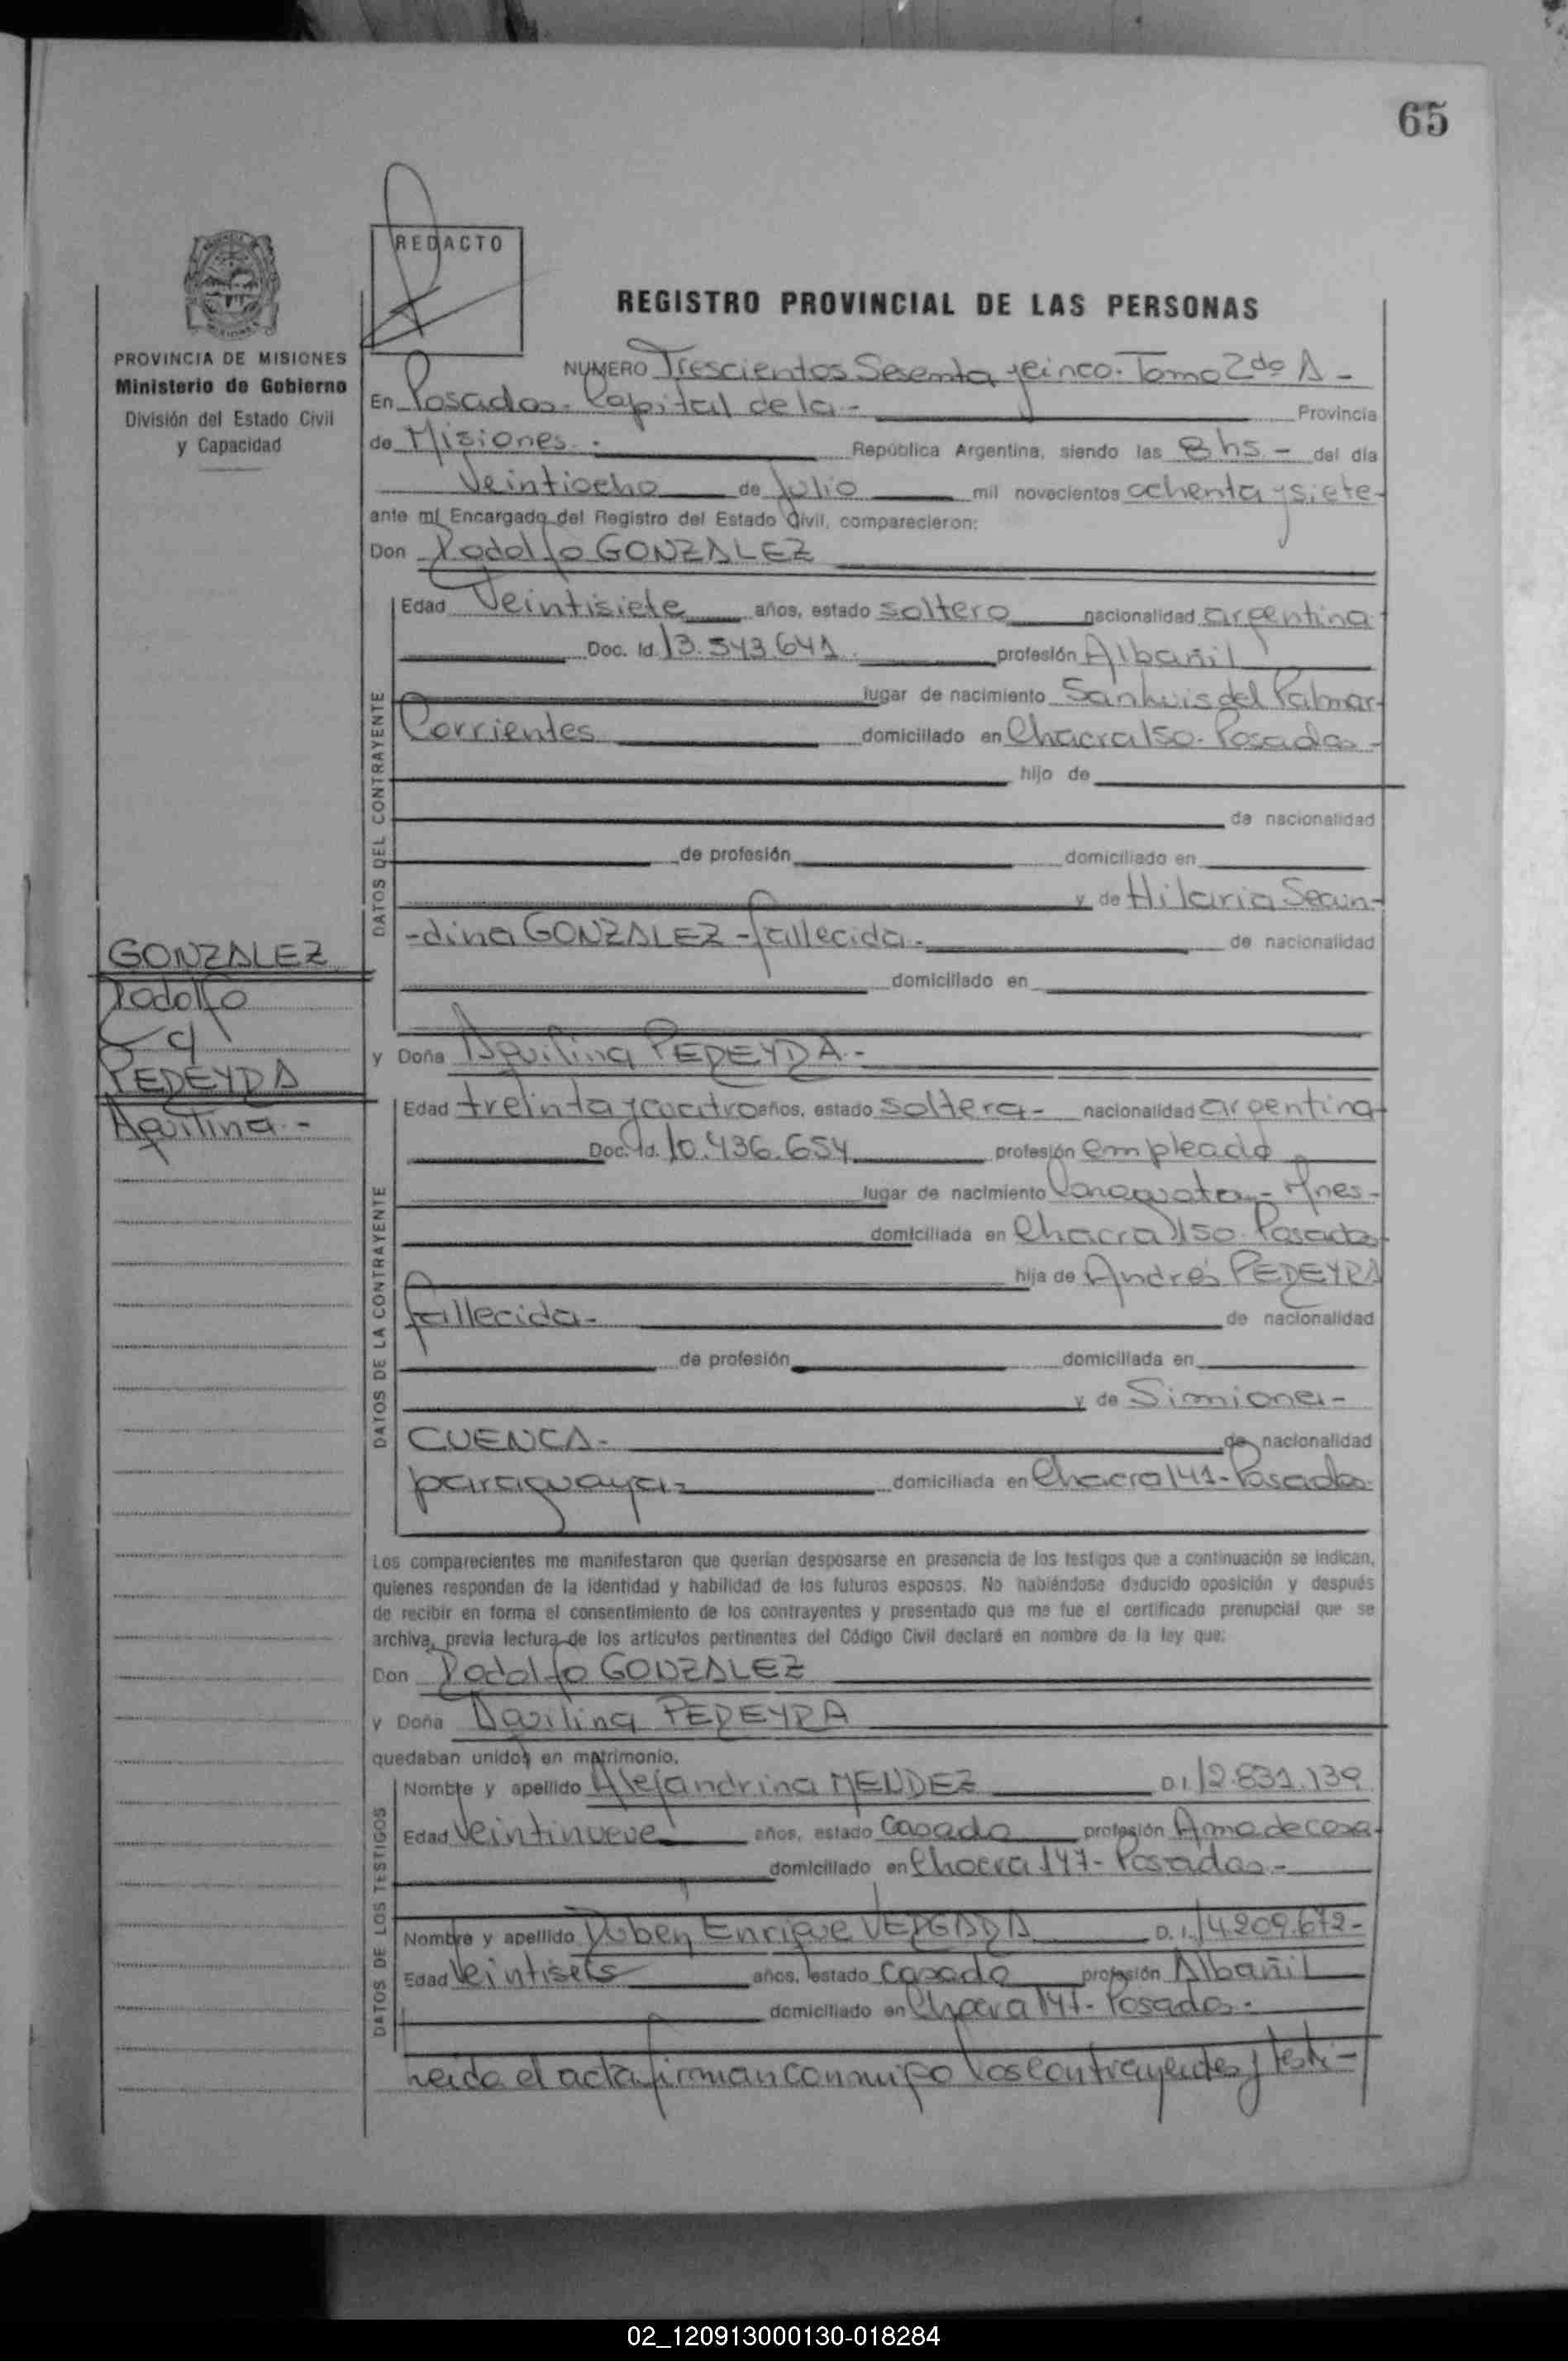 65
REDACTO
REGISTRO PROVINCIAL DE LAS PERSONAS
PROVINCIA DE MISIONES
Ministerio de Gobierno
División del Estado Civil
y Capacidad
NUMERO Trescientos Sesenta y cinco. Tomo 2do A -
En Posadas - Capital de la - Provincia
de Misiones - República Argentina, siendo las 8 hs - del día
Veintiocho de Julio mil novecientos ochenta y siete -
ante mí Encargado del Registro del Estado Civil, comparecieron:
Don Rodolfo GONZALEZ
DATOS DEL CONTRAYENTE
Edad Veintisiete años, estado soltero nacionalidad argentina
Doc. Id. 13.543.641 profesión Albañil
lugar de nacimiento San Luis del Palmar -
Corrientes domiciliado en Chacra 150 - Posadas -
hijo de
de nacionalidad
de profesión domiciliado en
y de Hilaria Secun-
-dina GONZALEZ - fallecida - de nacionalidad
domiciliado en
GONZALEZ
Rodolfo
c/
PEREYRA
Aquilina -
y Doña Aquilina PEREYRA -
DATOS DE LA CONTRAYENTE
Edad treinta y cuatro años, estado soltera - nacionalidad argentina
Doc. Id. 10.436.654 profesión empleada
lugar de nacimiento - Mnes -
domiciliada en Chacra 150 - Posadas
hija de Andrés PEREYRA
fallecida - de nacionalidad
de profesión domiciliada en
y de Simiona -
CUENCA - de nacionalidad
paraguaya - domiciliada en Chacra 141 - Posadas -
Los comparecientes me manifestaron que querían desposarse en presencia de los testigos que a continuación se indican,
quienes responden de la identidad y habilidad de los futuros esposos. No habiéndose deducido oposición y después
de recibir en forma el consentimiento de los contrayentes y presentado que me fue el certificado prenupcial que se
archiva, previa lectura de los artículos pertinentes del Código Civil declaré en nombre de la ley que:
Don Rodolfo GONZALEZ
y Doña Aquilina PEREYRA
quedaban unidos en matrimonio.
DATOS DE LOS TESTIGOS
Nombre y apellido Alejandrina MENDEZ D.I. 12.831.139
Edad Veintinueve años, estado Casada profesión Ama de casa -
domiciliado en Chacra 147 - Posadas -
Nombre y apellido Ruben Enrique VERGARA D.I. 14.209.672 -
Edad Veintiseis años, estado Casado profesión Albañil
domiciliado en Chacra 147 - Posadas -
Leida el acta firman conmigo los contrayentes y testi-
02_120913000130-018284